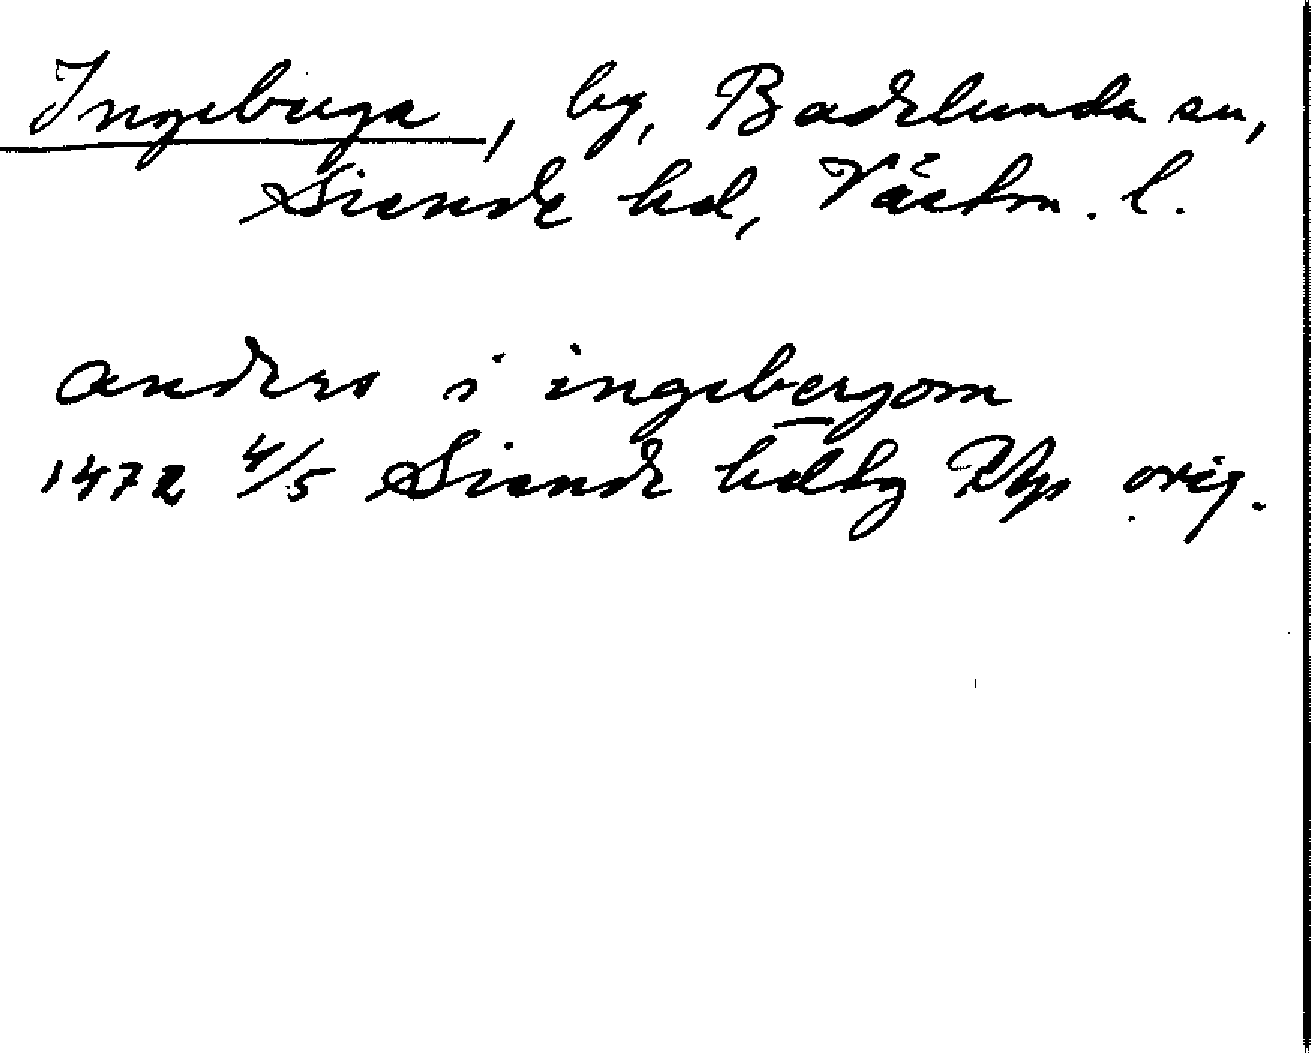 Ingeberga, by, Badelunda sn,
Siende hd, Västm. l.
anders i ingebergom
1472 4/5 Siende hdtg Rhp orig.